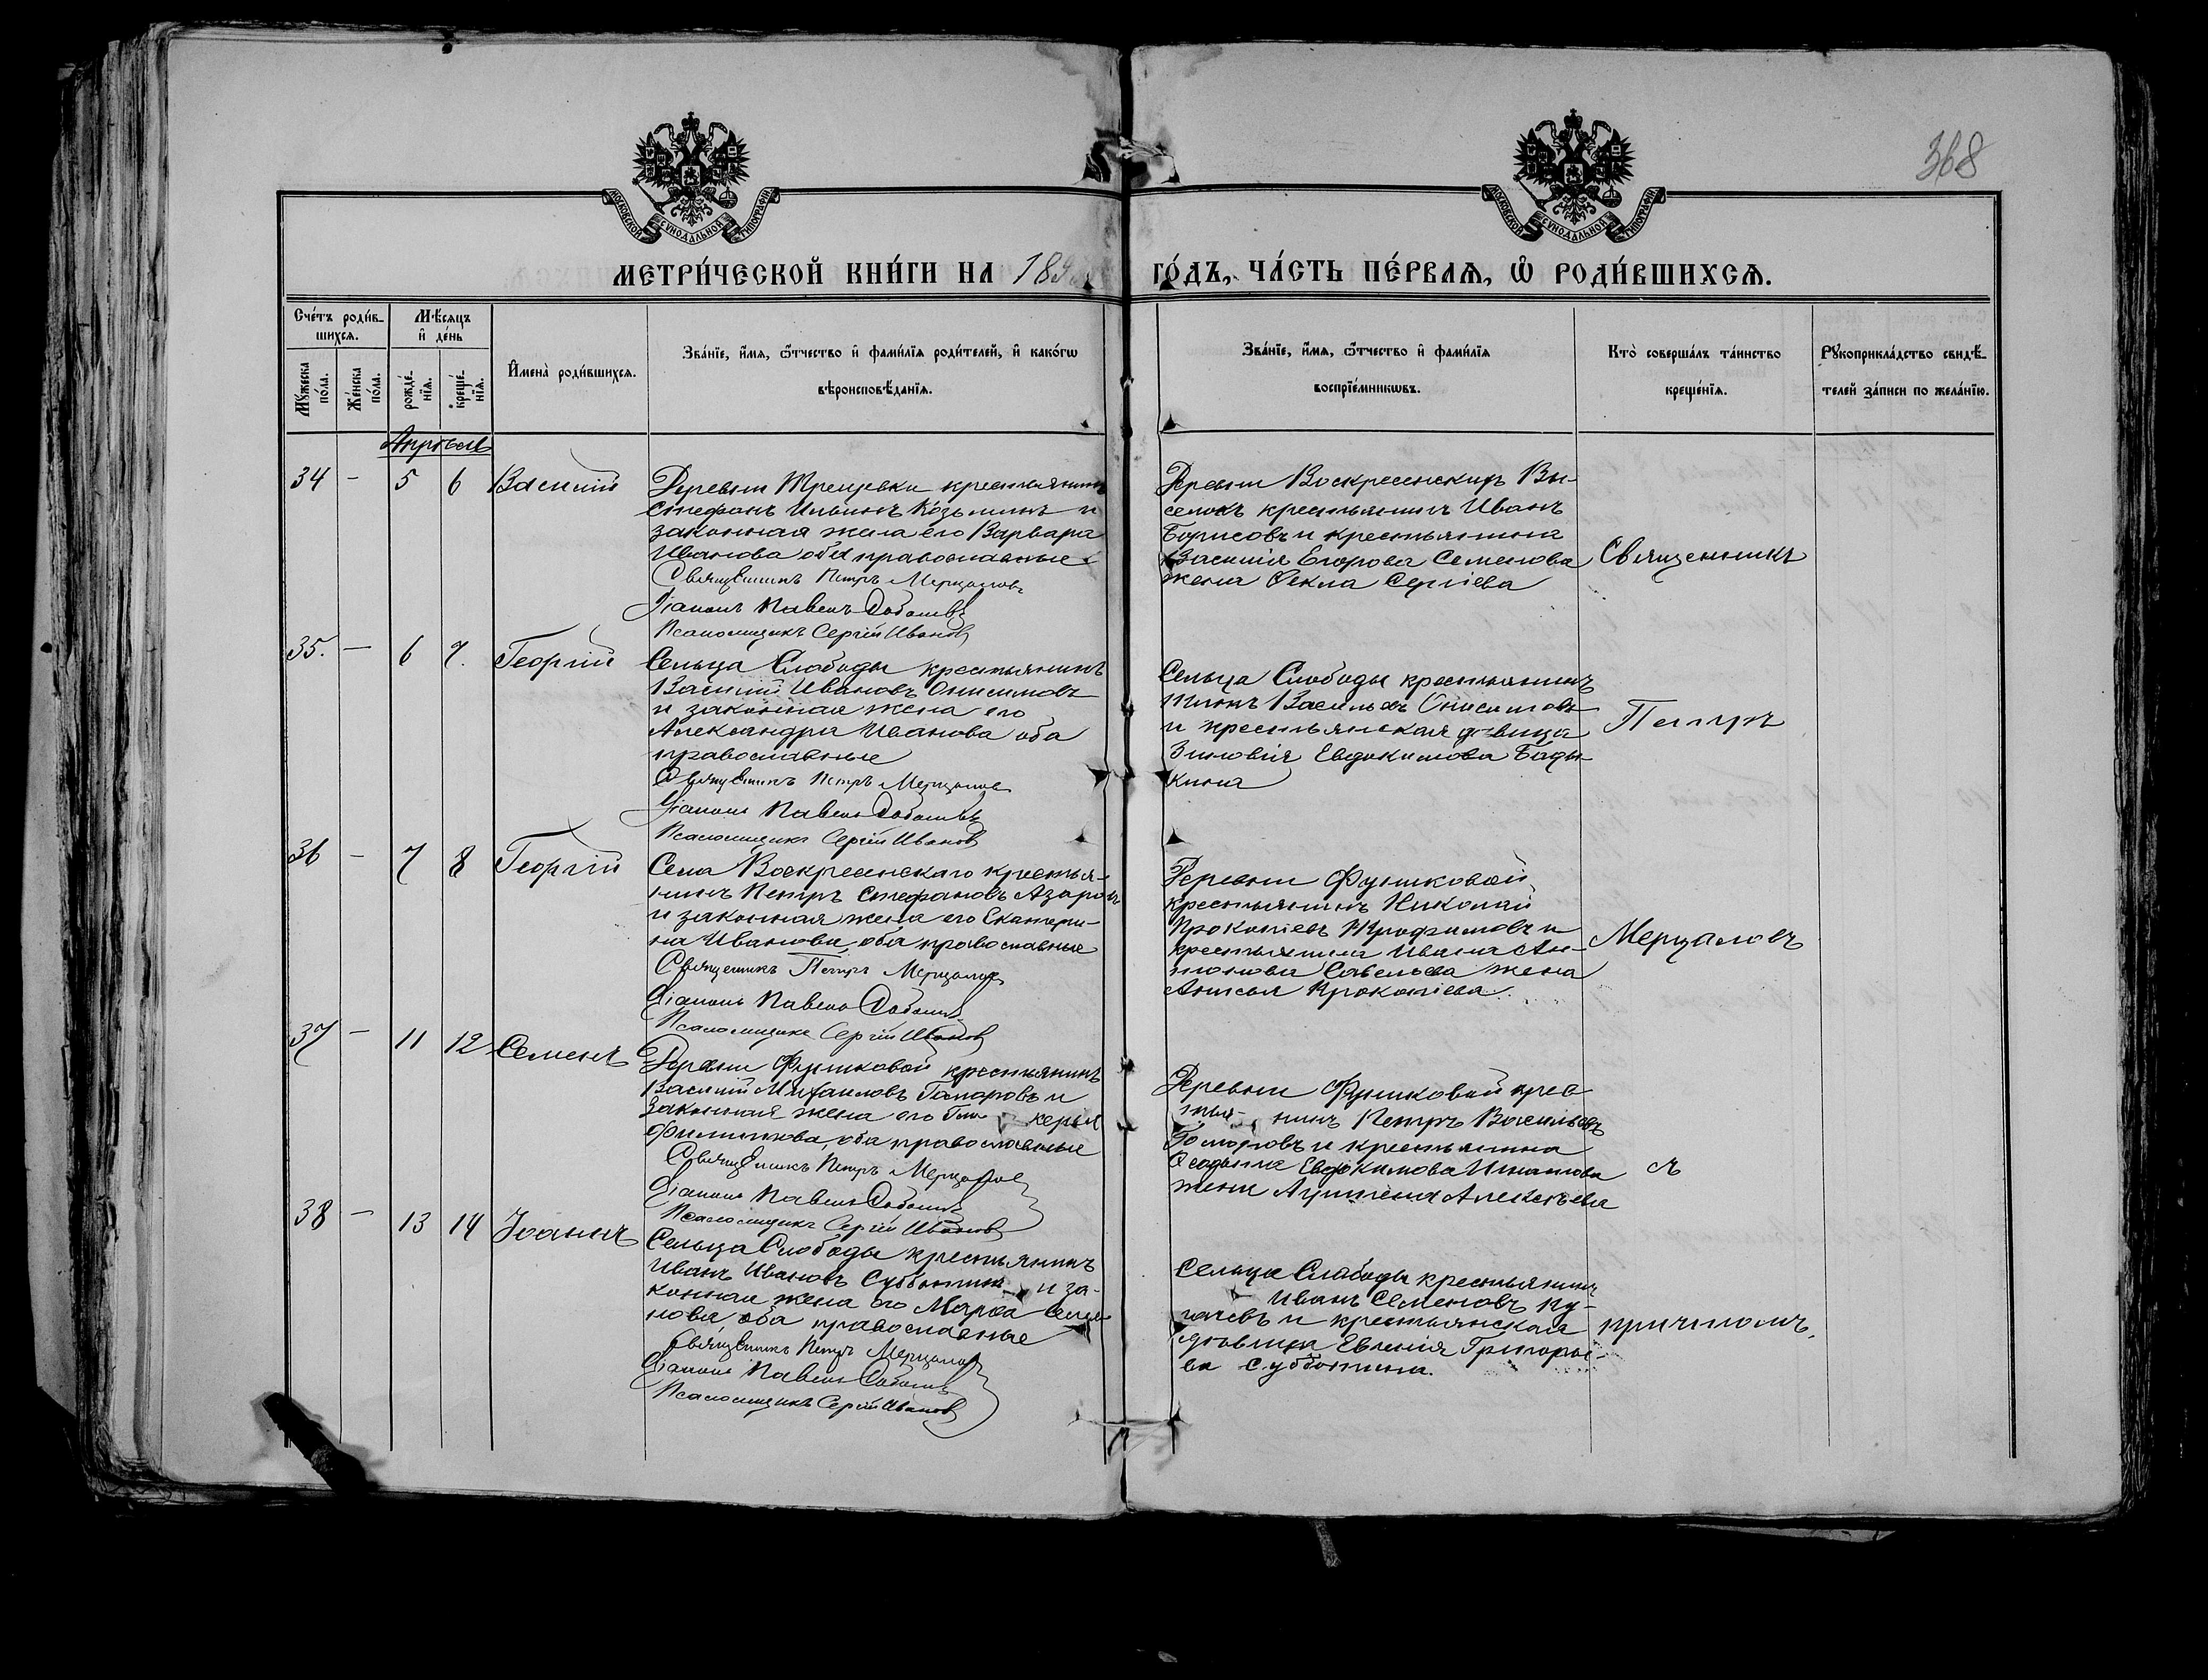 368
МОСКОВСКОЙ СѴНОДАЛЬНОЙ ТИПОГРАФІИ
МОСКОВСКОЙ СѴНОДАЛЬНОЙ ТИПОГРАФІИ
МЕТРИ́ЧЕСКОЙ КНИ́ГИ НА 189
ГО́ДЪ, ЧА́СТЬ ПЕ́РВАѦ, Ѽ РОДИ́ВШИХСѦ.
Сче́тъ роди́в-
шихся.
Мꙋ́жеска по́ла.
Же́нска по́ла.
Мѣ́сяцъ
и҆ де́нь
рожде́нїя.
креще́нїя.
И҆мена̀ роди́вшихся.
Зва́нїе, и҆́мя, ѻ҆́тчество и҆ фами́лїя роди́телей, и҆ како́гѡ
вѣроисповѣ́данїя.
Зва́нїе, и҆́мя, ѻ҆́тчество и҆ фами́лїя
воспрїе́мникѡвъ.
Кто̀ соверша́лъ та́инство
креще́нїя.
Рꙋкоприкла́дство свидѣ́-
телей за́писи по жела́нїю.
Апрѣль
34 - 5 6 Василій
Деревни крестьянинъ
Стефанъ Ильинъ Козьминъ и
законная жена его Варвара
Иванова оба православные
Священникъ Петръ Мерцаловъ
Діаконъ Павелъ
Псаломщикъ Сергій Ивановъ
Деревни Воскресенскихъ Вы-
селокъ крестьянинъ Иванъ
Борисовъ и крестьянина
Василія Егорова Семенова
жена Ѳекла Сергіева
Священникъ
35. - 6 7. Георгій
Сельца Слободы крестьянинъ
Василій Ивановъ Онисимовъ
и законная жена его
Александра Иванова оба
православные
Священникъ Петръ Мерцаловъ
Діаконъ Павелъ
Псаломщикъ Сергій Ивановъ
Сельца Слободы крестьянинъ
Васильевъ Онисимовъ
и крестьянская дѣвица
Зиновія Евдокимова Бады-
кина
Петръ
36 - 7 8 Георгій
Села Воскресенскаго крестья-
нинъ Петръ Стефановъ Азаровъ
и законная жена его Екатери-
на Иванова, оба православные
Священникъ Петръ Мерцаловъ
Діаконъ Павелъ
Псаломщикъ Сергій Ивановъ
Деревни Фушковой
крестьянинъ Николай
Прокопіевъ Трофимовъ и
крестьянина Ивана Ан-
тонова Савельева жена
Анисья Прокопіева.
Мерцаловъ
37 - 11 12 Семенъ
Деревни Фушковой крестьянинъ
Василій Михаиловъ и
законная жена его
Филиппова, оба православные
Священникъ Петръ Мерцаловъ
Діаконъ Павелъ
Псаломщикъ Сергій Ивановъ
Деревни Фушковой крес-
тья- нинъ Петръ Васильевъ
и крестьянина
Евдокимова Игнатова
жена Алексѣева
съ
38 - 13 14 Іоаннъ
Сельца Слободы крестьянинъ
Иванъ Ивановъ Субботинъ и за-
конная жена его Марѳа Семе-
нова, оба православные
Священникъ Петръ Мерцаловъ
Діаконъ Павелъ
Псаломщикъ Сергій Ивановъ
Сельца Слободы крестьянинъ
Иванъ Семеновъ Пу-
гачевъ и крестьянская
дѣвица Евгенія Григорье-
ва Субботина.
причтомъ.